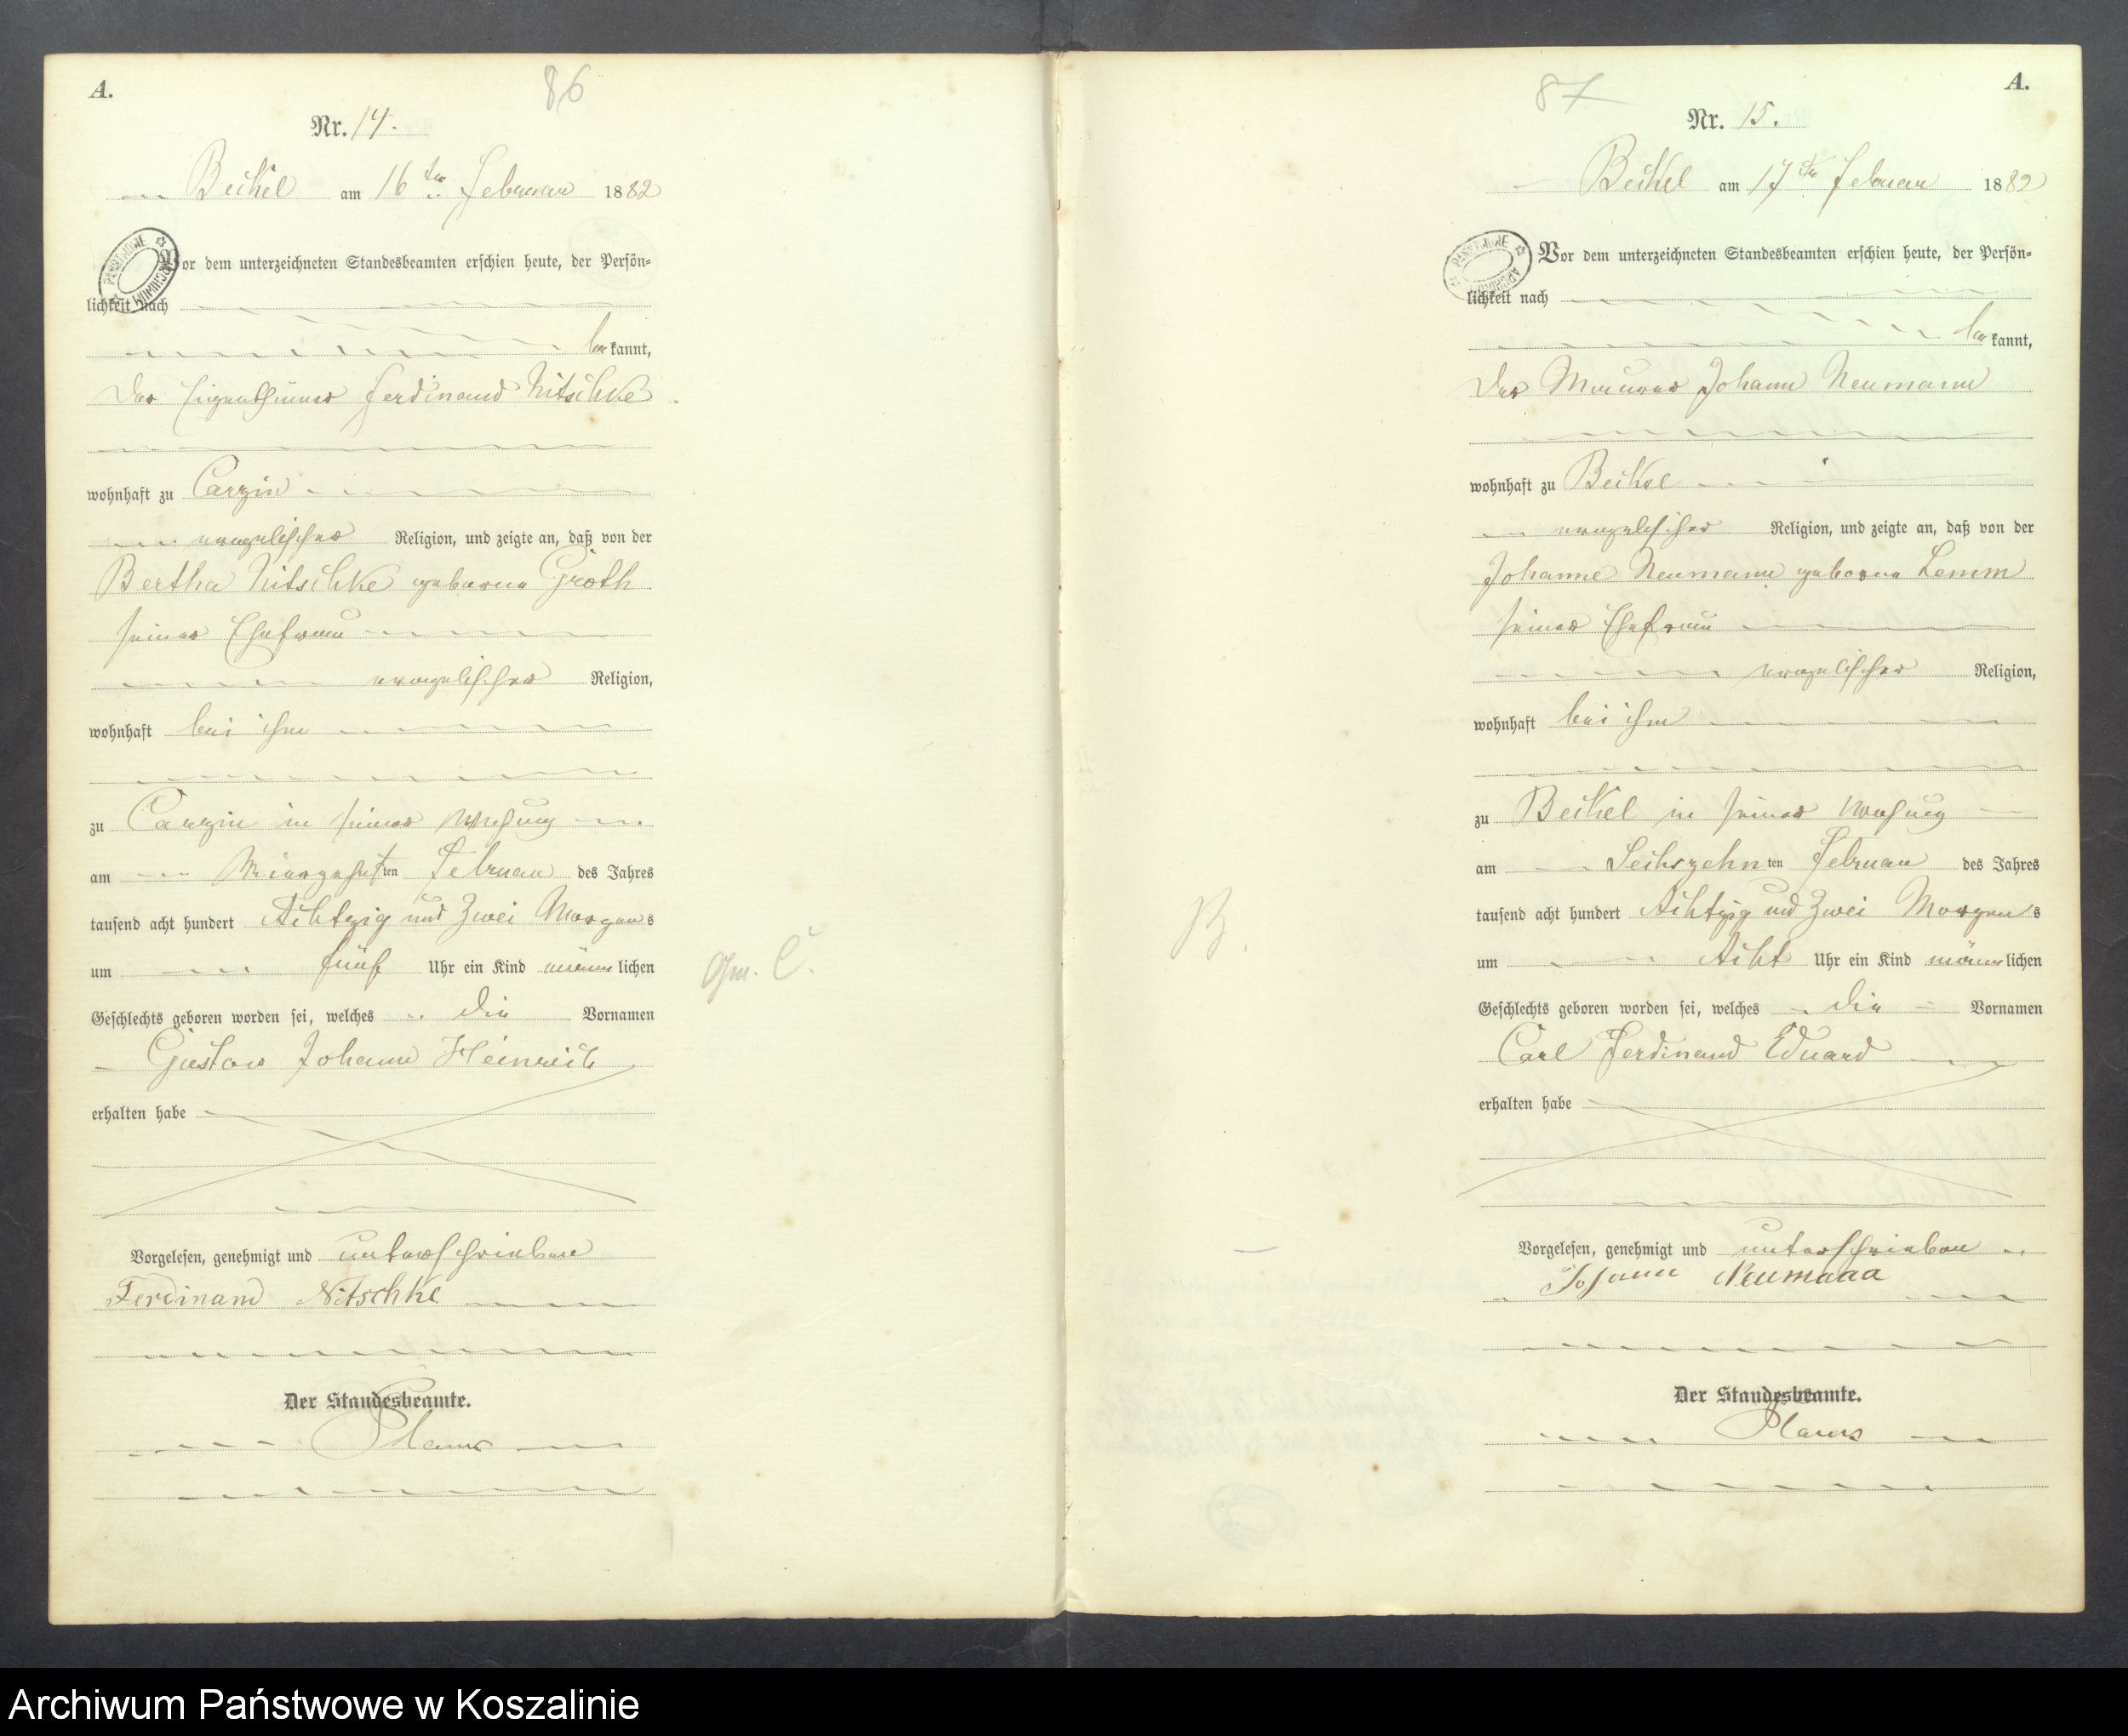 A.
86
Nr. 14.
Beikel am 16ten Februar 1882
Vor dem unterzeichneten Standesbeamten erschien heute, der Persön-
lichkeit nach
bekannt,
der Eigenthümer Ferdinand Nitschke
wohnhaft zu Carzin
evangelischer Religion, und zeigte an, daß von der
Bertha Nitschke geborne Groth
seiner Ehefrau
evangelischer Religion,
wohnhaft bei ihm
zu Carzin in seiner Wohnung
am Vierzehnten Februar des Jahres
tausend acht hundert Achtzig und Zwei Morgens
um fünf Uhr ein Kind männlichen
Geschlechts geboren worden sei, welches die Vornamen
Gustav Johann Heinrich
erhalten habe
Vorgelesen, genehmigt und unterschrieben
Ferdinand Nitschke
Der Standesbeamte.
C.
A.
87
Nr. 15.
Beikel am 17ten Februar 1882
Vor dem unterzeichneten Standesbeamten erschien heute, der Persön-
lichkeit nach
bekannt,
der Maurer Johann Neumann
wohnhaft zu Beikel
evangelischer Religion, und zeigte an, daß von der
Johanne Neumann geborne Lemm
seiner Ehefrau
evangelischer Religion,
wohnhaft bei ihm
zu Beikel in seiner Wohnung
am Sechszehnten Februar des Jahres
tausend acht hundert Achtzig und Zwei Morgens
um Acht Uhr ein Kind männlichen
Geschlechts geboren worden sei, welches die Vornamen
Carl Ferdinand Eduard
erhalten habe
Vorgelesen, genehmigt und unterschrieben
Johann Neumann
Der Standesbeamte.
B.
ARCHIWUM PAŃSTWOWE
ARCHIWUM PAŃSTWOWE
Archiwum Państwowe w Koszalinie